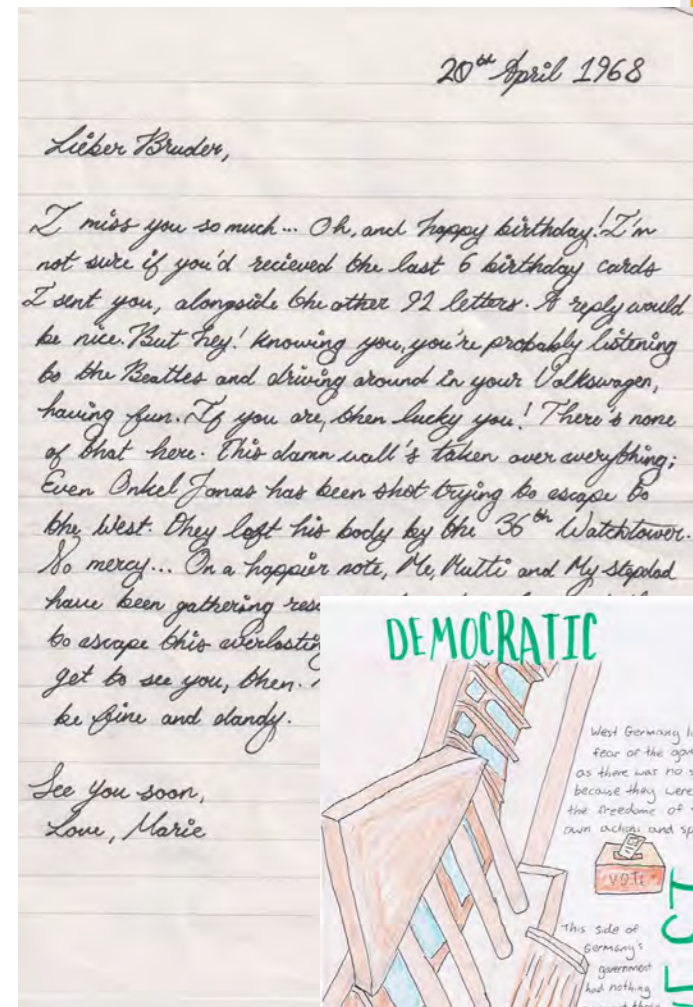 20th April 1968
Lieber Bruder,
I miss you so much... Oh, and happy birthday! I'm
not sure if you'd recieved the last 6 birthday cards
I sent you, alongside the other 92 letters. A reply would
be nice. But hey! Knowing you, you're probably listening
to the Beatles and driving around in your Volkswagen,
having fun. If you are, then lucky you! There's none
of that here. This damn wall's taken over everything;
Even Onkel Jonas has been shot trying to escape to
the West. They left his body by the 36th Watchtower.
No mercy... On a happier note, Me, Mutti and My stepdad
have been gathering
to escape this
get to see you, then.
be fine and dandy.
See you soon,
Love, Marie
DEMOCRATIC
West Germany
fear of the
as there was no
because they were
the freedome of
own actions and
VOTE
This side of
Germany's
government
had nothing